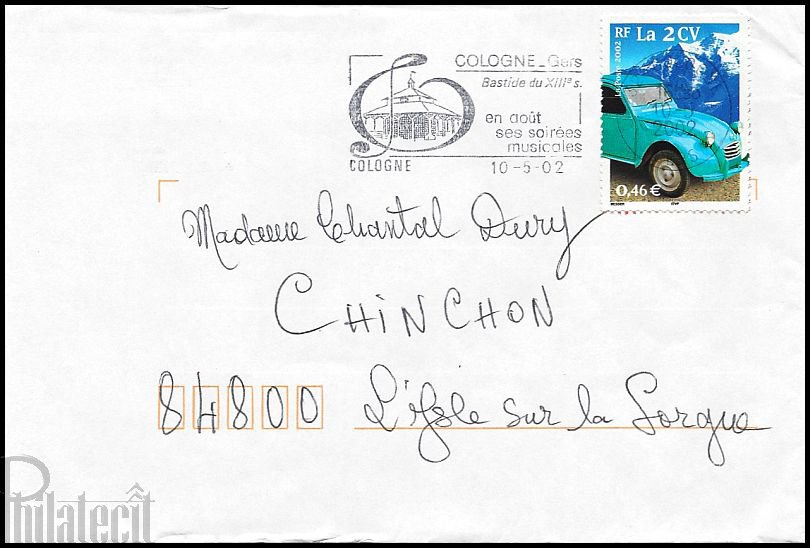 COLOGNE_Gers
Bastide du XIIIᵉ s.
en août
ses soirées
musicales
COLOGNE
10-5-02
RF La 2 CV
La Poste 2002
0,46 €
ITVF
Madame Chantal Dury
CHINCHON
84800 L'isle sur la Sorgue
Philatecit